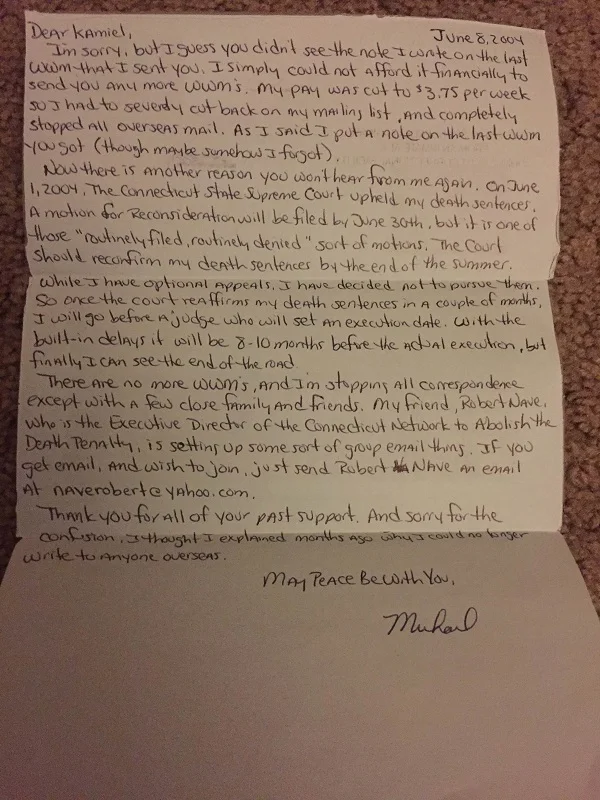 Dear Kamiel,
June 8, 2004
I'm sorry, but I guess you didn't see the note I wrote on the last
WWM that I sent you. I simply could not afford it financially to
send you any more WWM's. My pay was cut to $3.75 per week
so I had to severely cut back on my mailing list, and completely
stopped all overseas mail. As I said I put a note on the last WWM
you got (though maybe somehow I forgot).
Now there is another reason you won't hear from me again. On June
1, 2004, The Connecticut State Supreme Court upheld my death sentences.
A motion for Reconsideration will be filed by June 30th, but it is one of
those "routinely filed, routinely denied" sort of motions. The Court
should reconfirm my death sentences by the end of the summer.
While I have optional appeals, I have decided not to pursue them.
So once the court reaffirms my death sentences in a couple of months,
I will go before a judge who will set an execution date. With the
built-in delays it will be 8-10 months before the actual execution, but
finally I can see the end of the road.
There are no more WWM's, and I'm stopping all correspondence
except with a few close family and friends. My friend, Robert Nave,
who is the Executive Director of the Connecticut Network to Abolish the
Death Penalty, is setting up some sort of group email thing. If you
get email, and wish to join, just send Robert Nave an email
at naverobert@yahoo.com.
Thank you for all of your past support. And sorry for the
confusion, I thought I explained months ago why I could no longer
write to anyone overseas.
May Peace Be With You,
Michael